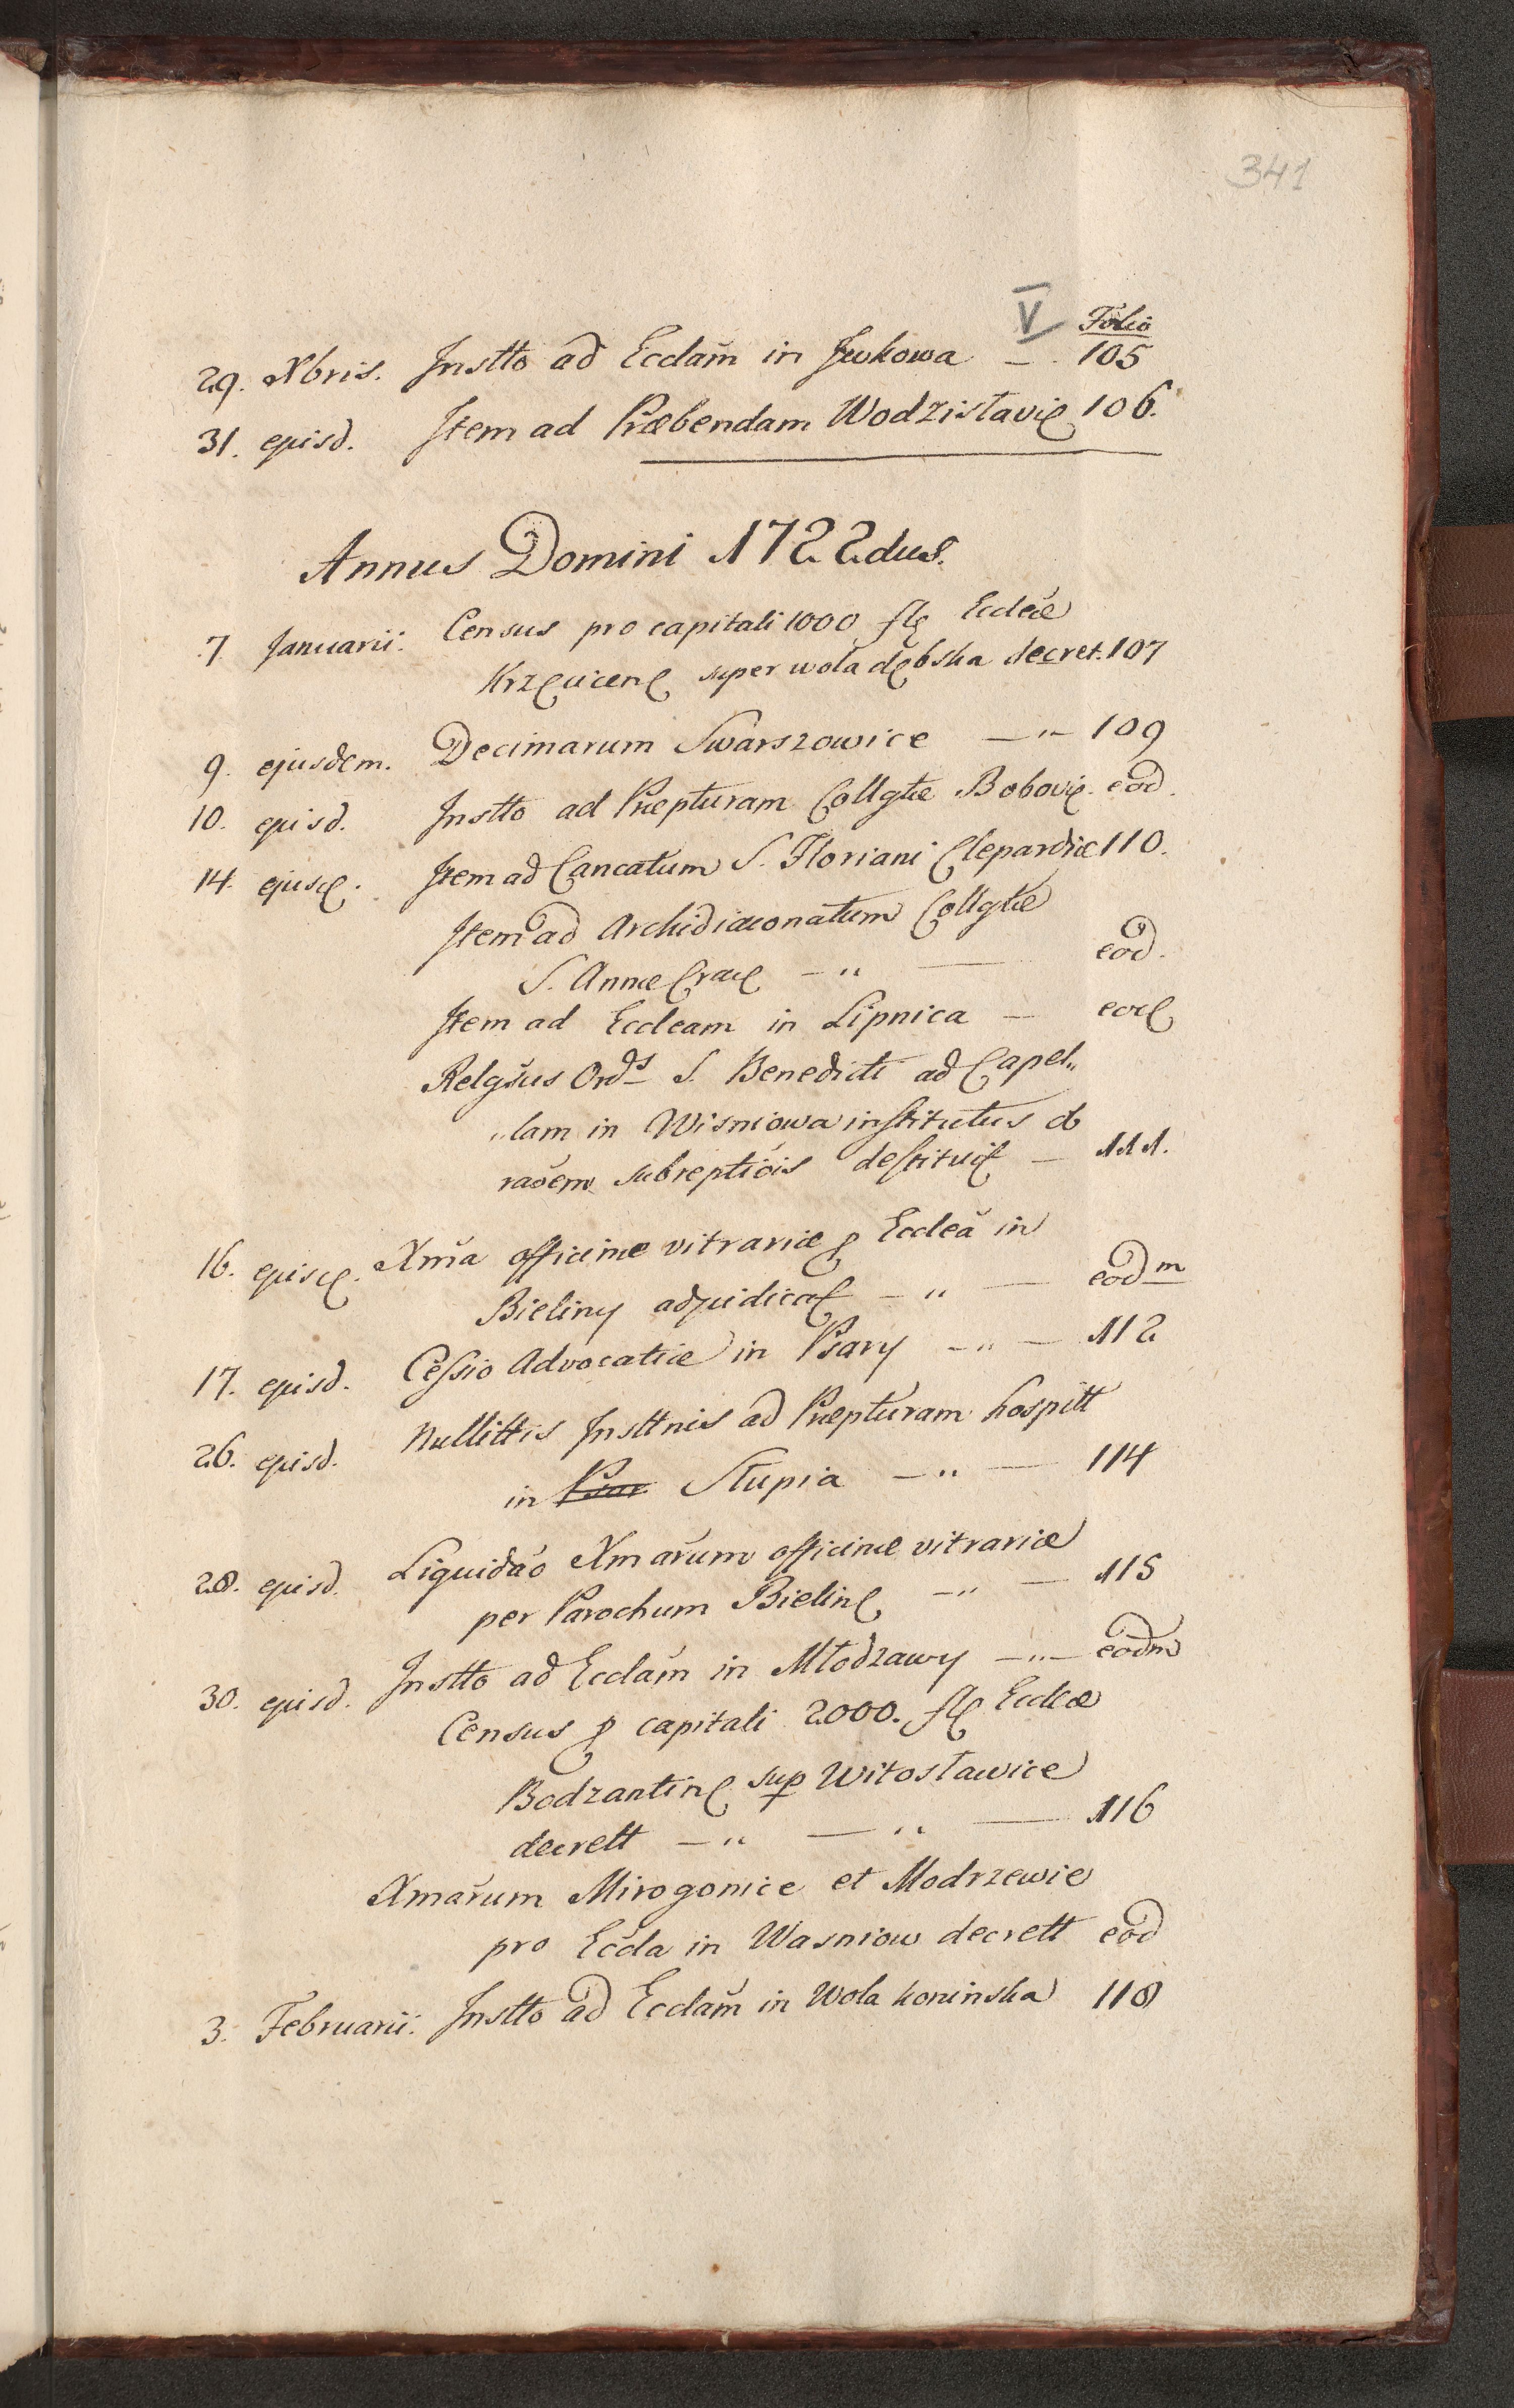 341
V Folio
29. Xbris. Instto ad Ecclam in Jwkowa — 105
31. ejusd. Item ad Præbendam Wodzislavię 106.
Annus Domini 1722dus.
7. Januarii. Census pro capitali 1000 flę Eccleæ
Krzęcicenę super wola dębska decret. 107
9. ejusdem. Decimarum Swarszowice — " — 109
10. ejusd. Instto ad Præpturam Collgtæ Bobovię. eod.
14. ejusę. Item ad Cancatum S. Floriani Clepardiæ 110.
Item ad Archidiaconatum Collgtæ
S. Annæ Cracę — " — eod.
Item ad Eccleam in Lipnica — eodę
Relgsus Ords S. Benedicti ad Capel„
„lam in Wisniowa institutus ob
raoem subreptiois destituit — 111.
16. ejusę. Xma officinæ vitrariæ p Ecclea in
Bieliny adjudicat — " — eodm
17. ejusd. Cessio Advocatiæ in Psary — " — 112
26. ejusd. Nullittis Insttnis ad Præpturam hospitt
in Psar Slupia — " — 114
28. ejusd. Liquidao Xmarum officinæ vitrariæ
per Parochum Bielinę — " — 115
30. ejusd. Instto ad Ecclam in Młodzawy — " — eodm
Census p capitali 2000. flę Eccleæ
Bodzantinę sup Witosławice
decrett — " — " — 116
Xmarum Mirogonice et Modrzewie
pro Eccla in Wasniow decrett eod
3. Februarii. Instto ad Ecclam in Wola koninska 118